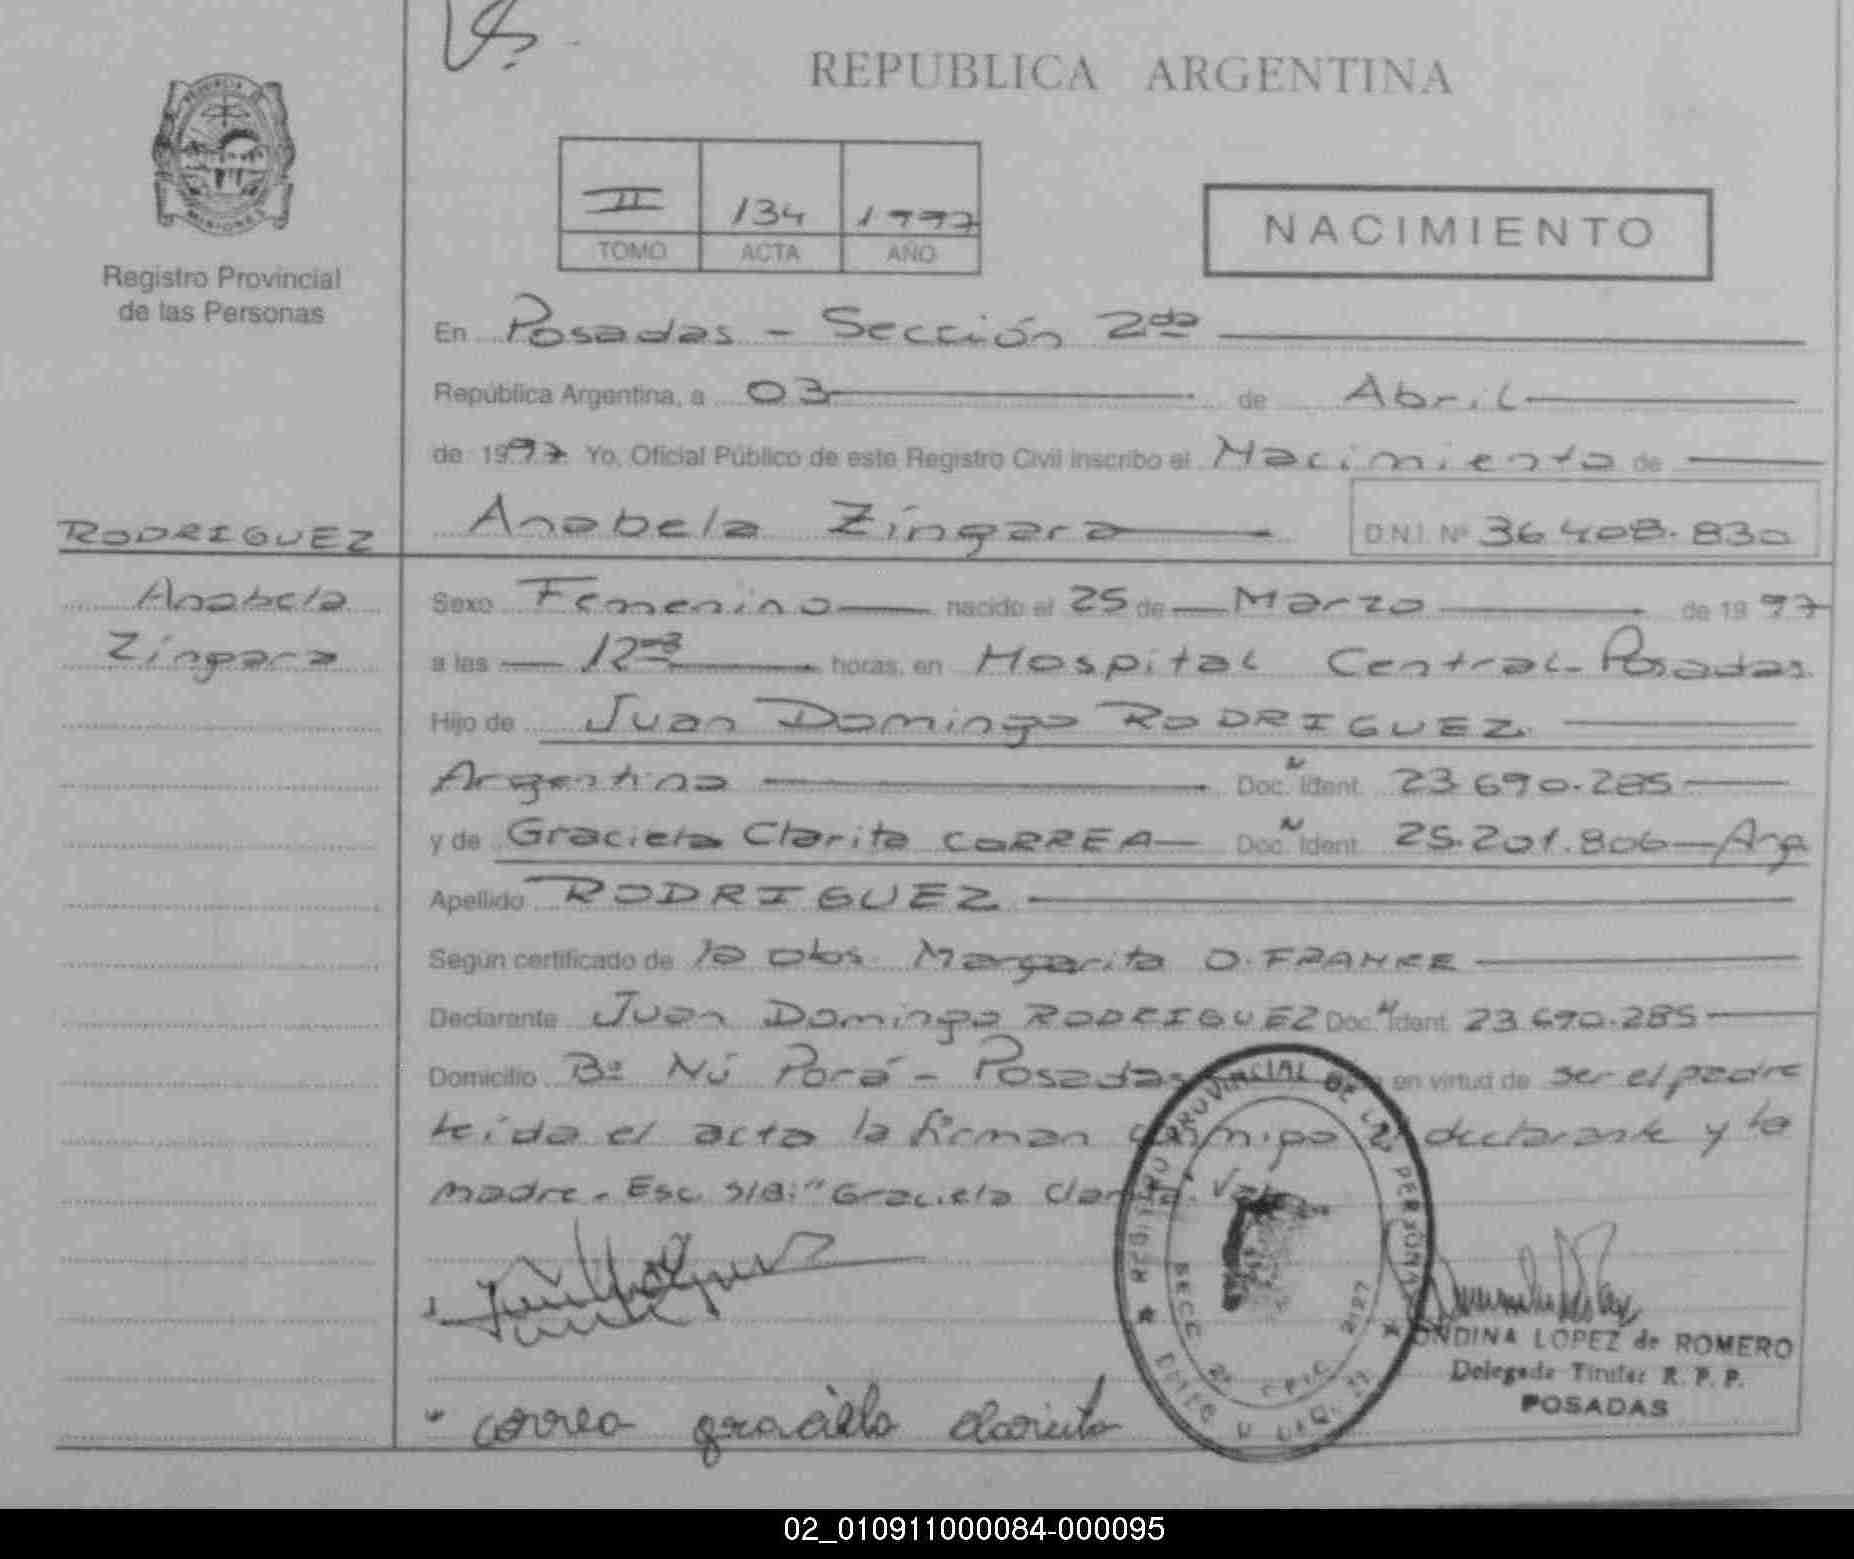 REPUBLICA ARGENTINA
II 134 1997
TOMO ACTA AÑO
NACIMIENTO
Registro Provincial
de las Personas
En Posadas - Sección 2da
República Argentina, a 03 de Abril
de 1997. Yo, Oficial Público de este Registro Civil inscribo el Nacimiento de
RODRIGUEZ Anabela Zingara D.N.I. Nº 36.408.830
Anabela
Zingara
Sexo Femenino nacido el 25 de Marzo de 1997
a las 12 horas, en Hospital Central - Posadas
Hijo de Juan Domingo RODRIGUEZ
Argentino Doc. N Ident. 23.690.285
y de Graciela Clarita CORREA Doc. N Ident. 25.201.806 - Arg
Apellido RODRIGUEZ
Según certificado de la obs. Margarita O. FRANKE
Declarante Juan Domingo RODRIGUEZ Doc. N Ident. 23.690.285
Domicilio Bº Ñú Porá - Posadas en virtud de ser el padre
leída el acta la firman conmigo el declarante y la
madre. Esc. S/B: "Graciela
REGISTRO PROVINCIAL DE LAS PERSONAS
SECC 2ª
correa graciela clarita
ONDINA LOPEZ de ROMERO
Delegada Titular R. P. P.
POSADAS
02_010911000084-000095